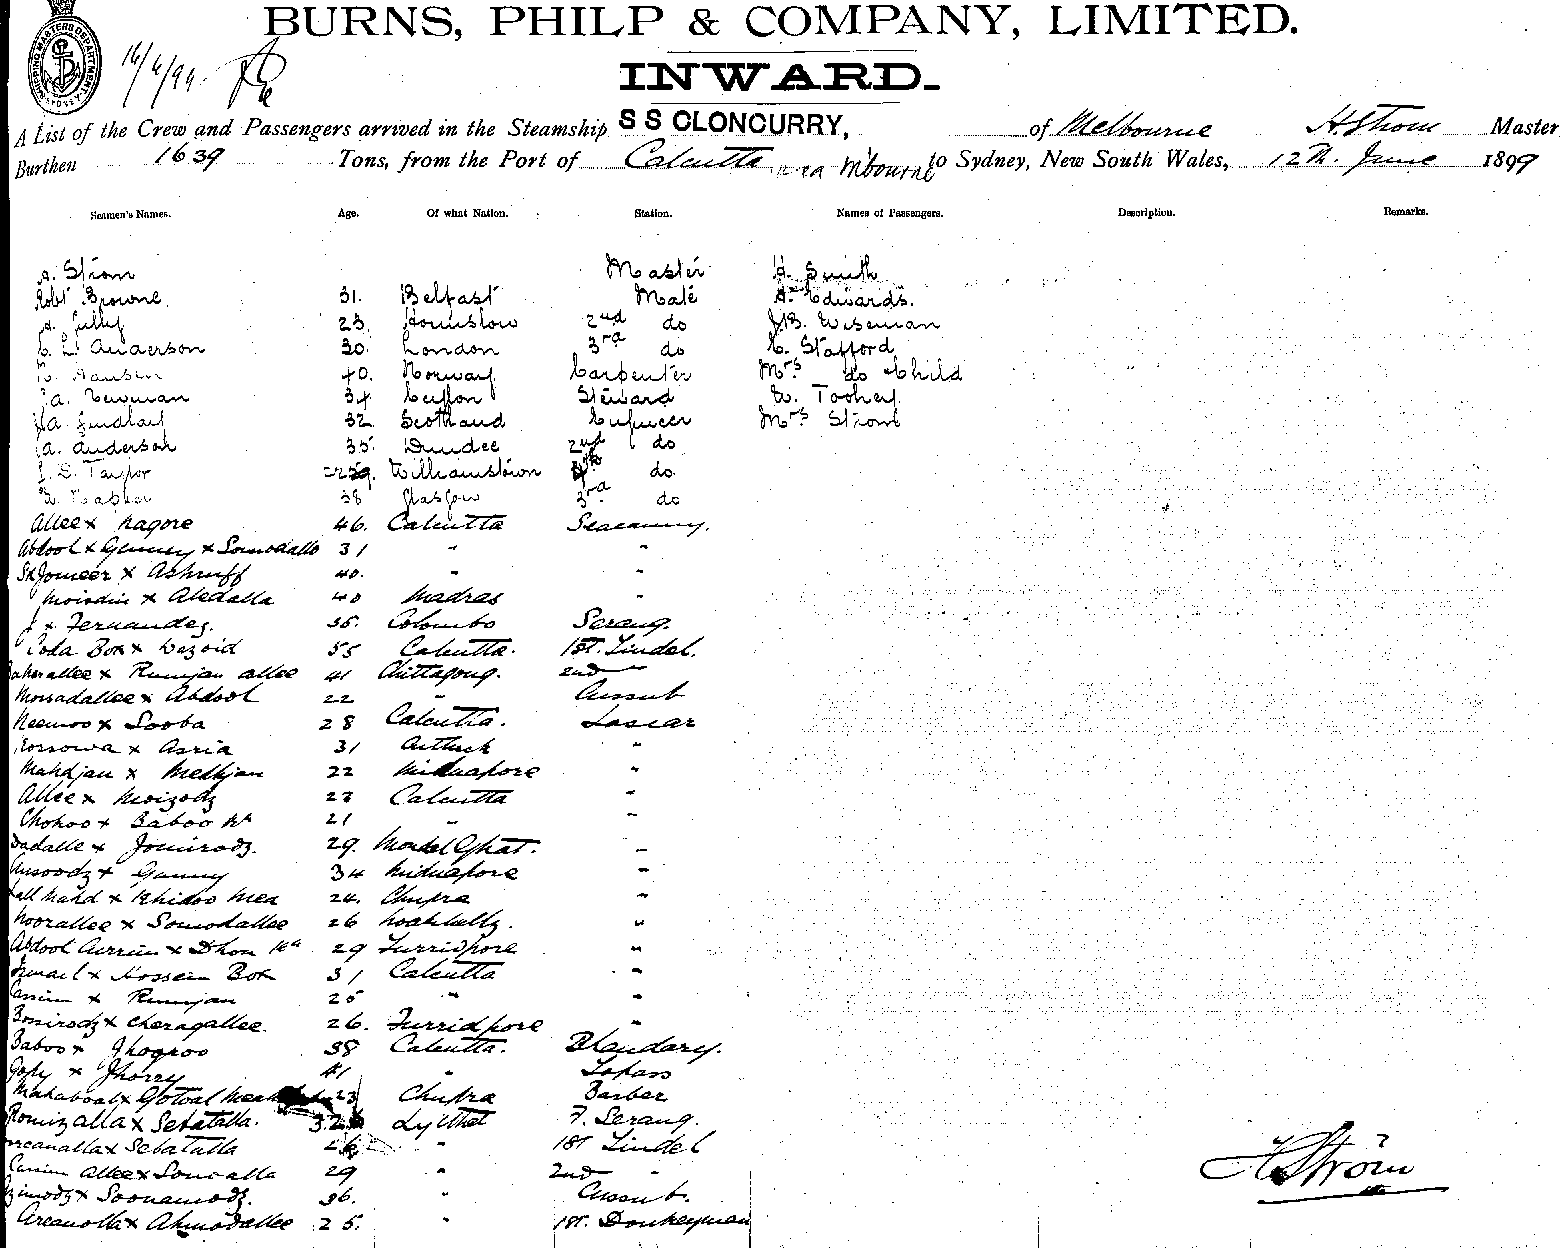 BURNS, PHILP & COMPANY, LIMITED.
16/6/99.
INWARD.
A List of the Crew and Passengers arrived in the Steamship S S CLONCURRY, of Melbourne H. Strom Master
Burthen 1639 Tons, from the Port of Calcutta via M'bourne to Sydney, New South Wales, 12th. June 1899
Seamen's Names. Age. Of what Nation. Station. Names of Passengers. Description. Remarks.
Strom Master Smith
Robt Browne 31. Belfast Mate Edwards.
23. Hounslow 2nd do Wiseman
Anderson 30. London 3rd do Stafford
Hansen 40. Norway Carpenter Mrs do Child
A. Newman 34. Ceylon Steward Toohey.
A. Lindlay 32 Scotland Engineer Mrs Strom
A. Anderson 35. Dundee 2nd do
Taylor Williamstown 4th do.
Napier 38 Glasgow 3rd do
Allee x Nagore 46. Calcutta Seacunny.
Abdool x Gunny x Somodalle 31 " "
Sk Jomeer x Ashruff 40. " "
Moisdin x Aledalla 40 Madras "
J x Fernandez. 35. Colombo Serang.
Coda Box x Wazoid 55 Calcutta. 1st. Tindel.
x Rumjan allee 41 Chittagong. 2nd "
Morsadallee x Abdool 22 " Cussub
Neemoo x Sooba 28 Calcutta. Lascar
x Asria 31 Cuttuck "
Mahdjan x Melhjan 22 Midnapore "
Allee x Moizodz 22 Calcutta "
Chokoo x Baboo 21 " "
Dadalle x Jomirodz. 29. Mondel Ghat. "
x Gunny 34 Midnapore "
x Khidoo Mea 24. Chupra "
Noorallee x Somodallee 26 Noakhally. "
Abdool Currim x Dhon 29 Furridpore "
Ismail x Hossein Box 31 Calcutta "
Cassim x Rumjan 25 " "
Bosirodz x Cheragallee. 26. Furridpore "
Baboo x Jhogroo 38 Calcutta. Bhandary.
Gopy x Jhorry 41 " Topass
Mahabool x Gotoal Meah 23 Chupra Barber
Romizalla x Sebatalla. 32 Sylhet F. Serang.
x Sebatalla " 1st Tindel
Cassim allee x Sonoalla 29 " 2nd "
x Soonamodz. 36. " Cussub.
Arcanolla x Ahmodallee 25. " 1st. Donkeyman
H Ström